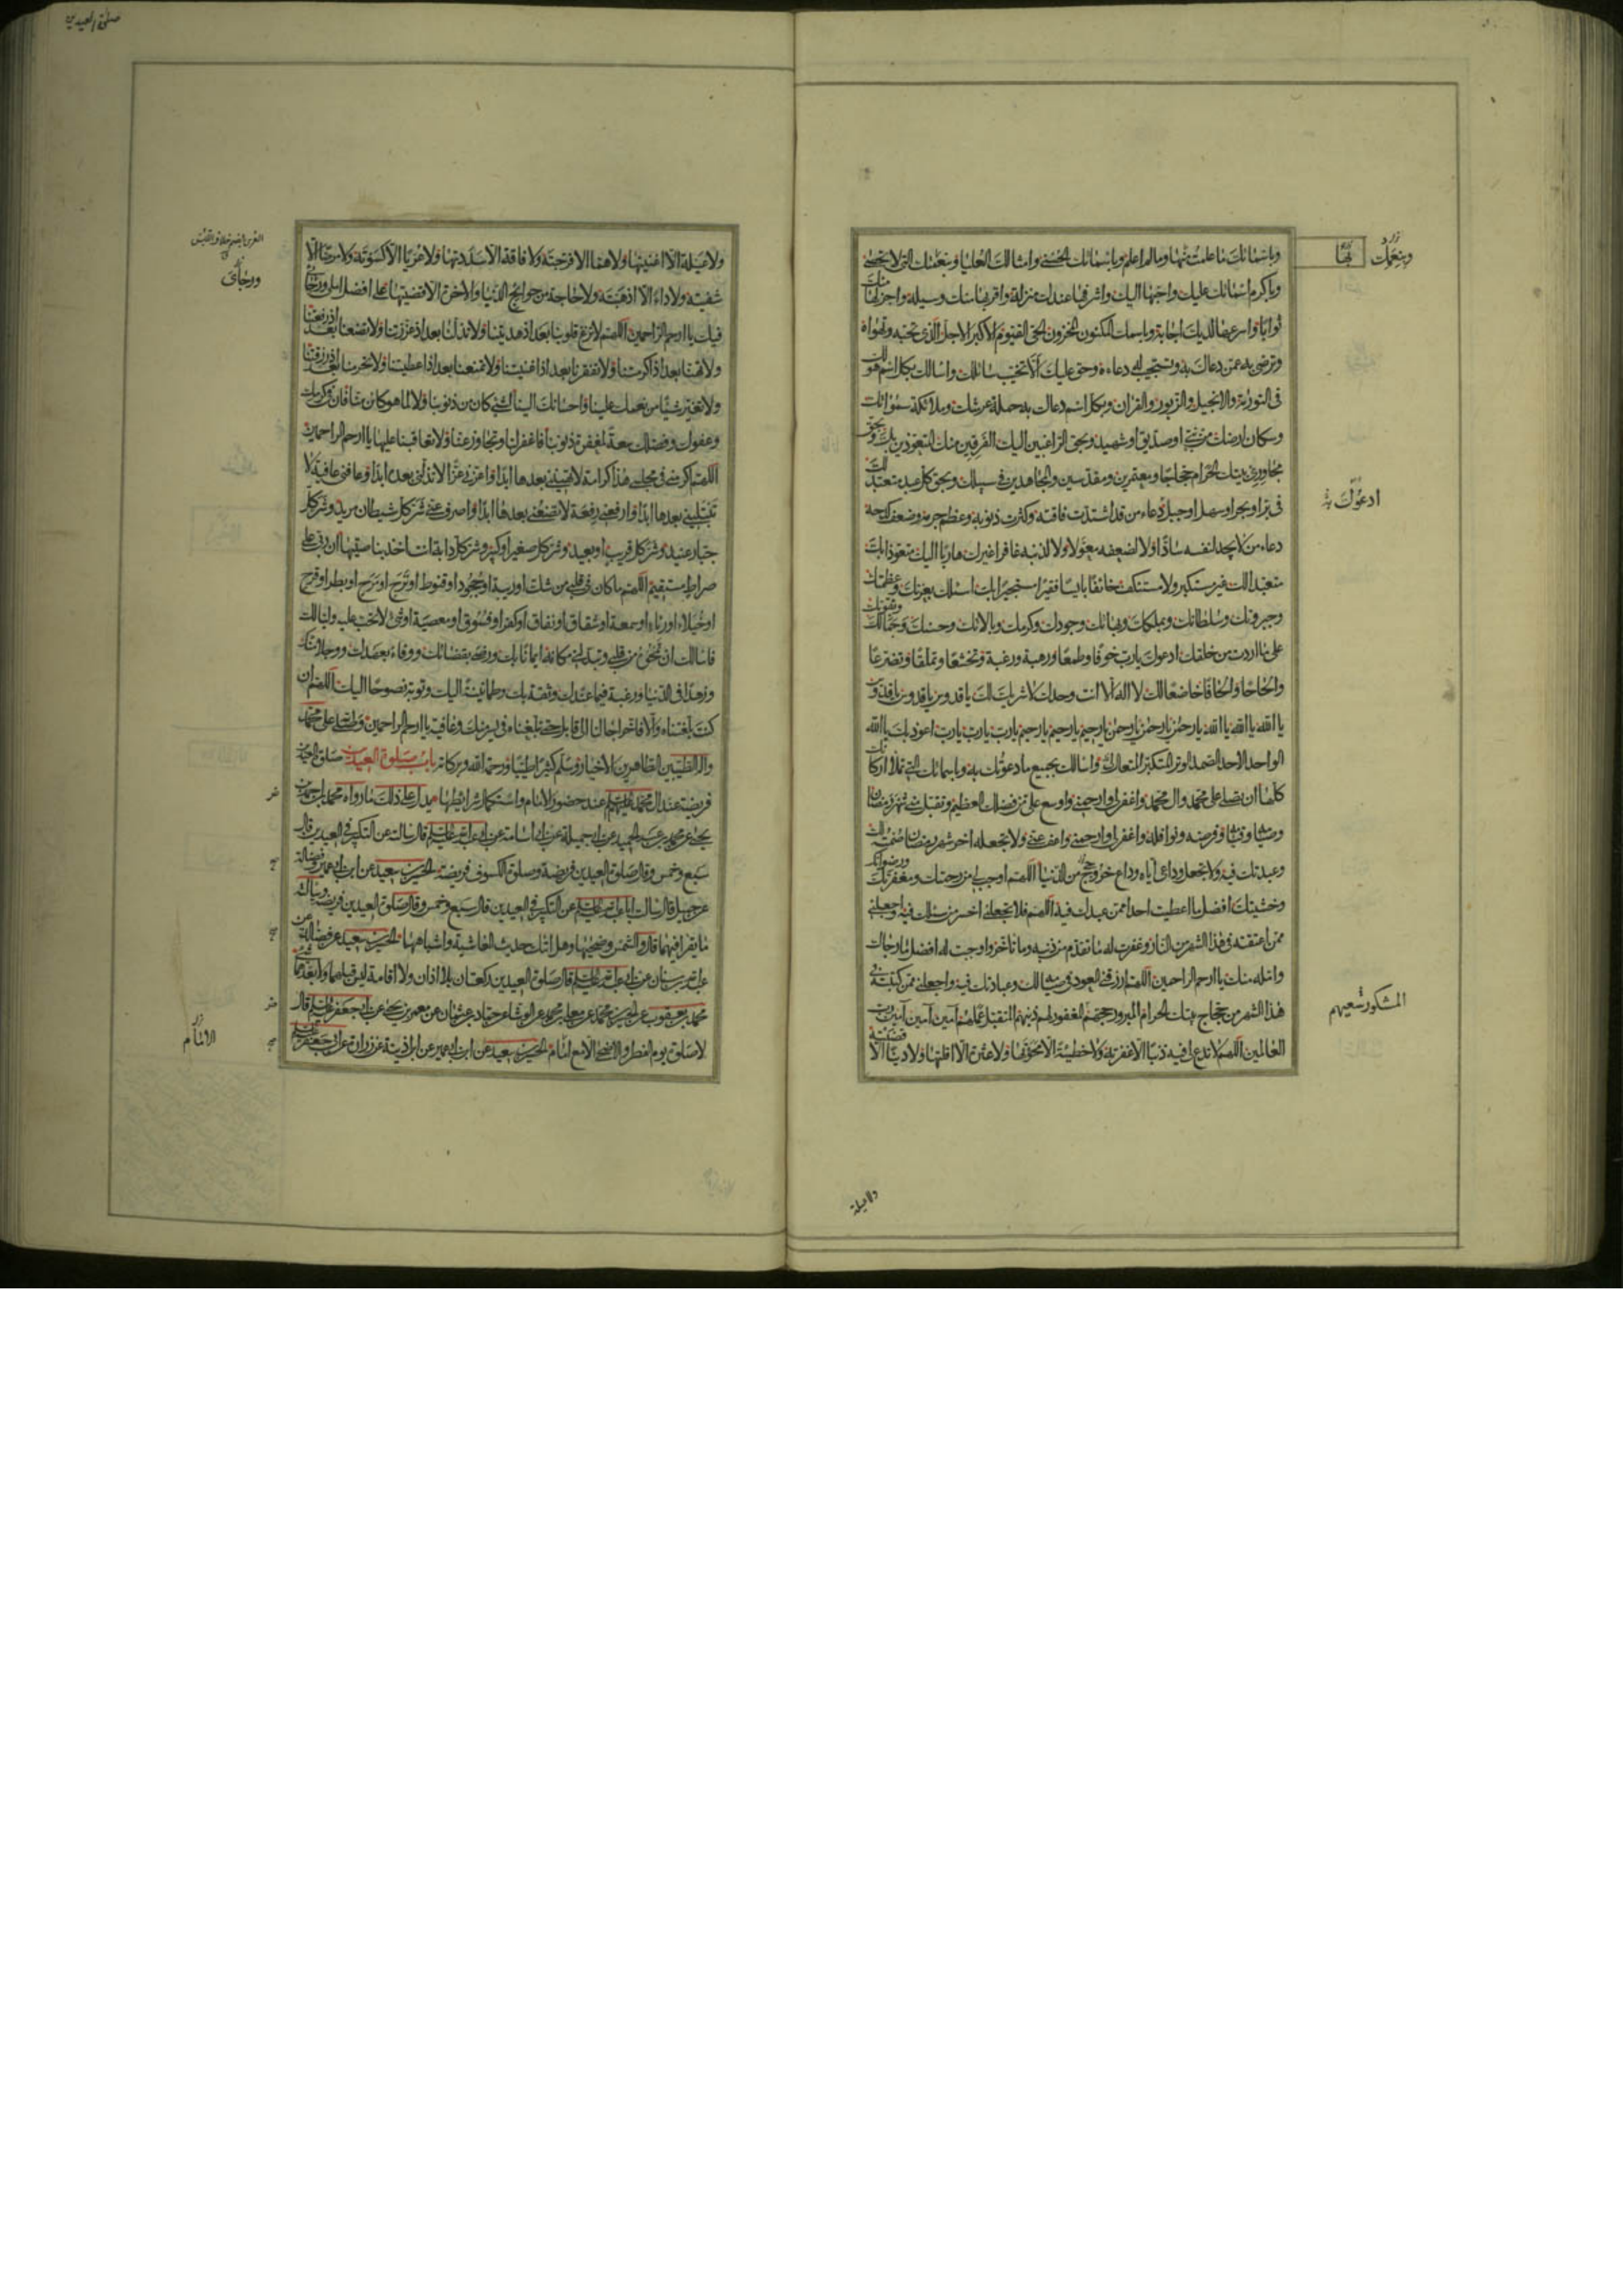 وباسمائك ما علمت منها وما لم اعلم وباسمائك الحسنى وامثالك العليا وبنعمتك التى لا تحصى
وباكرم اسمائك عليك واحبها اليك واشرفها عندك منزلة واقربها منك وسيلة واجزلها منك
ثوابا واسرعها لديك اجابة وباسمك المكنون المخزون الحى القيوم الاكبر الاجل الذى تحبه وتهواه
وترضى به عمن دعاك به وتستجيب له دعاءه وحق عليك الا تخيب سائلك واسالك بكل اسم هو لك
فى التورية والانجيل والزبور والقران وبكل اسم دعاك به حملة عرشك وملائكة سمواتك
وسكان ارضك من نبى او صديق او شهيد وبحق الراغبين اليك الفرقين منك المتعوذين بك وبحق
مجاورى بيتك الحرام حجاجا ومعتمرين ومقدسين والمجاهدين فى سبيلك وبحق كل عبد متعبد لك
فى بر او بحر او سهل او جبل دعاء من قد اشتدت فاقته وكثرت ذنوبه وعظم جرمه وضعف كدحه
دعاء من لا يجد لنفسه سادا ولا لضعفه معولا ولا لذنبه غافرا غيرك هاربا اليك متعوذا بك
متعبدا لك غير مستكبر ولا مستنكف خائفا بائسا فقيرا مستجيرا بك اسئلك بعزتك وعظمتك
وجبروتك وسلطانك وبملكك وبهائك وجودك وكرمك وبالائك وحسنك وجمالك وبقوتك
على ما اردت من خلقك ادعوك يارب خوفا وطمعا ورهبة ورغبة وتخشعا وتملقا وتضرعا
والحاحا والحافا خاضعا لك لا اله الا انت وحدك لا شريك لك يا قدوس يا قدوس يا قدوس
يا الله يا الله يا الله يا رحمن يا رحمن يا رحمن يا رحيم يا رحيم يا رحيم يا رب يا رب يا رب اعوذ بك يا الله
الواحد الاحد الصمد الوتر المتكبر المتعال واسالك بجميع ما دعوتك به وباسمائك التى تملا اركانك
كلها ان تصلى على محمد وال محمد واغفر لى وارحمنى واوسع على من فضلك العظيم وتقبل منى شهر رمضان
وصيامه وقيامه وفرضه ونوافله واغفر لى وارحمنى واعف عنى ولا تجعله اخر شهر رمضان صمته لك
وعبدتك فيه ولا تجعل وداعى اياه وداع خروجى من الدنيا اللهم اوجب لى من رحمتك ومغفرتك ورضوانك
وخشيتك افضل ما اعطيت احدا ممن عبدك فيه اللهم فلا تجعلنى اخسر من سالك فيه واجعلنى
ممن اعتقته فى هذا الشهر من النار وغفرت له ما تقدم من ذنبه وما تاخر واوجبت له افضل ما رجاك
وامله منك يا ارحم الراحمين اللهم ارزقنى العود فى صيامك وعبادتك فيه واجعلنى ممن كتبته فى
هذا الشهر من حجاج بيتك الحرام المبرور حجهم المغفور لهم ذنبهم المتقبل عملهم امين امين امين رب
العالمين اللهم لا تدع لى فيه ذنبا الا غفرته ولا خطيئة الا محوتها ولا عثرة الا اقلتها ولا دينا الا قضيته
وبنعمك
ادعوك به
المشكور سعيهم
ولا عيلة
صلوة العيدين
ولا عيلة الا اغنيتها ولا هما الا فرجته ولا فاقة الا سددتها ولا عريا الا كسوته ولا مرضا الا
شفيته ولا داء الا اذهبته ولا حاجة من حوائج الدنيا والاخرة الا قضيتها على افضل املى ورجائى
فيك يا ارحم الراحمين اللهم لا تزغ قلوبنا بعد اذ هديتنا ولا تذلنا بعد اذ عززتنا ولا تضعنا بعد اذ رفعتنا
ولا تهنا بعد اذ اكرمتنا ولا تفقرنا بعد اذ اغنيتنا ولا تمنعنا بعد اذ اعطيتنا ولا تحرمنا بعد اذ رزقتنا
ولا تغير شيئا من نعمك علينا واحسانك الينا لشئ كان من ذنوبنا ولا لما هو كائن منا فان فى كرمك
وعفوك وفضلك سعة لمغفرة ذنوبنا فاغفر لنا وتجاوز عنا ولا تعاقبنا عليها يا ارحم الراحمين
اللهم اكرمنى فى مجلسى هذا كرامة لا تهيننى بعدها ابدا واعزنى عزا لا تذلنى بعده ابدا وعافنى عافية لا
تبتلينى بعدها ابدا وارفعنى رفعة لا تضعنى بعدها ابدا واصرف عنى شر كل شيطان مريد وشر كل
جبار عنيد وشر كل قريب او بعيد وشر كل صغير او كبير وشر كل دابة انت اخذ بناصيتها ان ربى على
صراط مستقيم اللهم ما كان فى قلبى من شك او ريبة او جحود او قنوط او ترح او مرح او بطر او فرح
او خيلاء او رياء او سمعة او شقاق او نفاق او كفر او فسوق او معصية او شئ لا تحب عليه وليا لك
فاسالك ان تمحوه من قلبى وتبدلنى مكانه ايمانا بك ورضى بقضائك ووفاء بعهدك ووجلا منك
وزهدا فى الدنيا ورغبة فيما عندك وثقة بك وطمانينة اليك وتوبة نصوحا اليك اللهم ان
كنت بلغتناه والا فاخر اجالنا الى قابل حتى تبلغناه فى يسر منك وعافية يا ارحم الراحمين وصلى الله على محمد
واله الطيبين الطاهرين الاخيار وسلم كثيرا طيبا ورحمة الله وبركاته باب صلوة العيدين صلوة العيدين
فريضة عند ال محمد عليهم السلم عند حضور الامام واستكمال شرائطها يدل على ذلك ما رواه محمد بن احمد بن
يحيى عن محمد بن عبد الحميد عن ابى جميلة عن ابى اسامة عن ابى عبد الله عليه السلم قال سالته عن التكبير فى العيدين قال
سبع وخمس وقال صلوة العيدين فريضة وصلوة الكسوف فريضة الحسين بن سعيد عن ابن ابى عمير وفضالة
عن جميل قال سالت ابا عبد الله عليه السلم عن التكبير فى العيدين قال سبع وخمس وقال صلوة العيدين فريضة وسالته
ما يقرا فيهما قال والشمس وضحيها وهل اتيك حديث الغاشية واشباههما الحسين بن سعيد عن فضالة عن
عبد الله بن سنان عن ابى عبد الله عليه السلم قال صلوة العيدين ركعتان بلا اذان ولا اقامة ليس قبلهما ولا بعدهما شئ
محمد بن يعقوب عن الحسين بن محمد عن معلى بن محمد عن الوشاء عن حماد بن عثمان عن معمر بن يحيى عن ابى جعفر عليه السلم قال
لا صلوة يوم الفطر والاضحى الا مع امام الحسين بن سعيد عن ابن ابى عمير عن ابن اذينة عن زرارة عن ابى جعفر عليه السلم
ورجائى
الا بامام